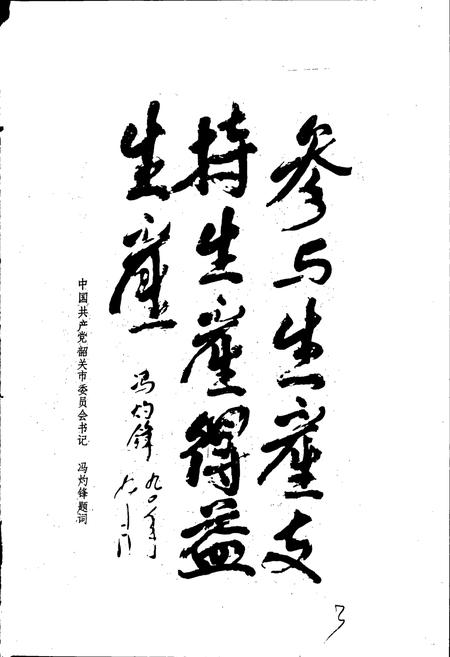 参与生產支
持生產得益
生產
冯灼锋 九〇年
中国共产党韶关市委员会书记 冯灼锋题词
3